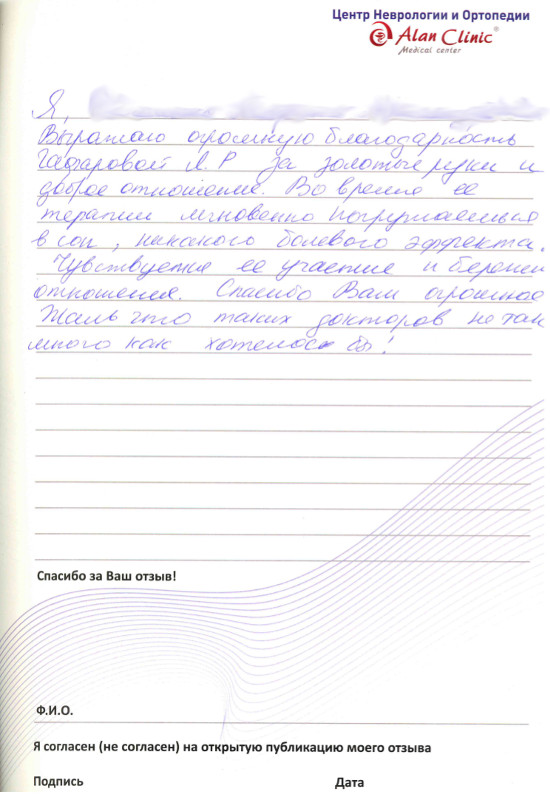 Центр Неврологии и Ортопедии
Alan Clinic®
Medical center
Я,
Выражаю огромную благодарность
Гаффаровой Л.Р за золотые руки и
доброе отношение. Во время ее
терапии мгновенно погружаешься
в сон, никакого болевого эффекта.
Чувствуется ее участие и бережн
отношения. Спасибо Вам огромное
Жаль что таких докторов не так
много как хотелось бы!
Спасибо за Ваш отзыв!
Ф.И.О.
Я согласен (не согласен) на открытую публикацию моего отзыва
Подпись Дата